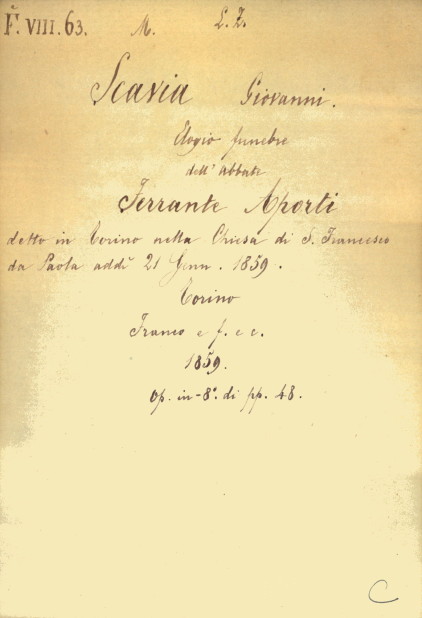 F. VIII. 63. M. L. Z.
Scavia Giovanni.
Elogio funebre
dell' abbate
Ferrante Aporti
detto in Torino nella Chiesa di S. Francesco
da Paola addì 21 Genn. 1859.
Torino
Franco e f. e c.
1859.
Op. in-8°. di pp. 48.
C